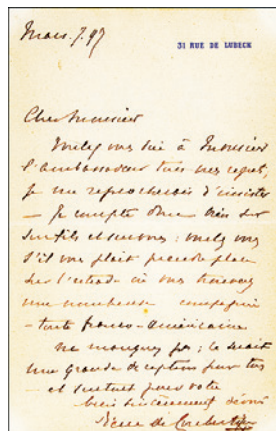 Mars. 7. 97
31 RUE DE LUBECK
Cher Monsieur
Voulez vous dire à Monsieur
l'ambassadeur tous mes regrets,
je me reprocherais d'insister
— Je compte donc bien sur
son fils et sur vous : voulez vous
s'il vous plait prendre place
sur l'estrade où vous trouverez
une nombreuse compagnie
— toute franco-américaine.
Ne manquez pas ; ce serait
une grande déception pour tous
— et surtout pour votre
bien sincèrement dévoué
Pierre de Coubertin